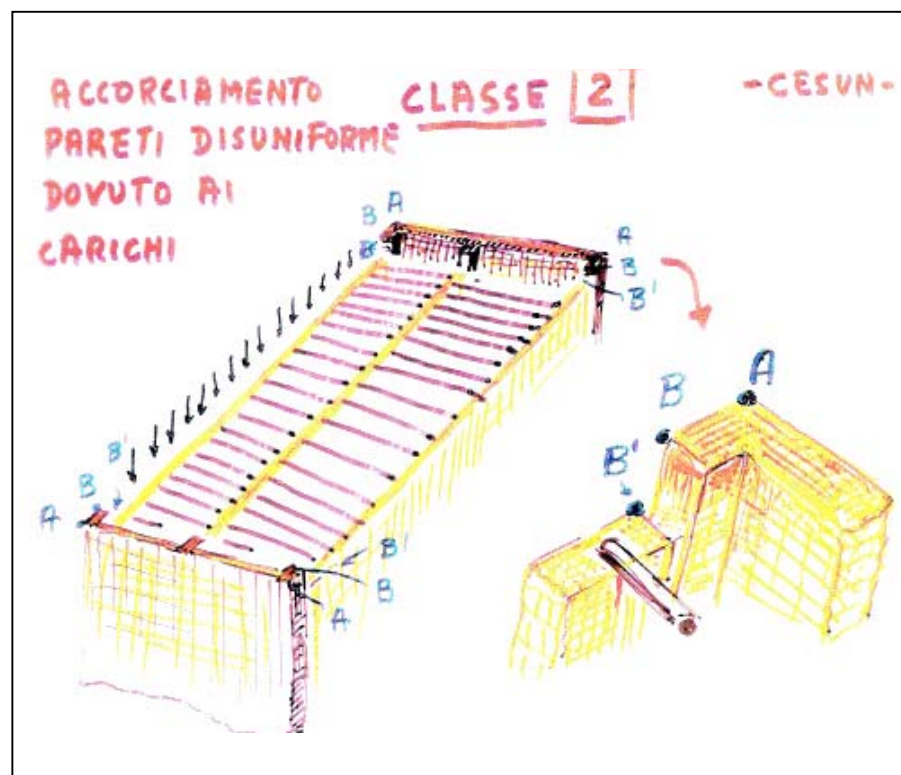 ACCORCIAMENTO
PARETI DISUNIFORME
DOVUTO AI
CARICHI
CLASSE 2
-CESUN-
B A
B'
A
B
B'
B'
B
A
B'
B
A
A
B
B'